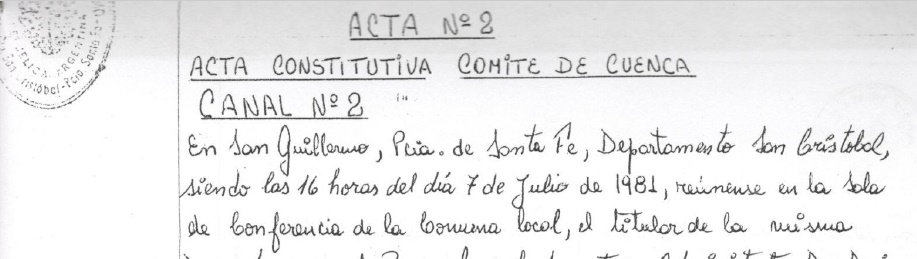 ACTA Nº 2
ACTA CONSTITUTIVA COMITE DE CUENCA
CANAL Nº 2
En San Guillermo, Pcia. de Santa Fe, Departamento San Cristobal,
siendo las 16 horas del día 7 de Julio de 1981, reúnense en la Sala
de Conferencia de la Comuna local, el titular de la misma